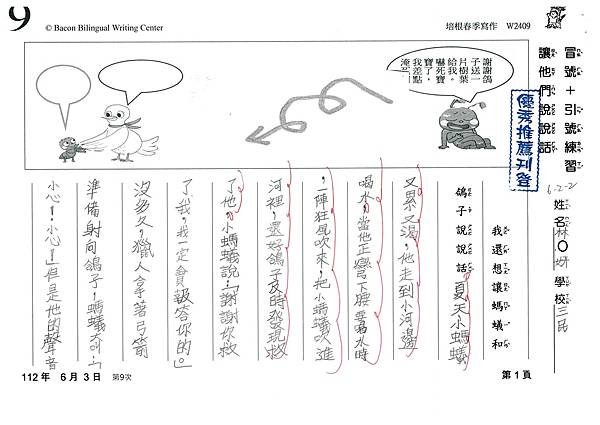 9
© Bacon Bilingual Writing Center
培根春季寫作 W2409
冒號+引號練習
讓他們說說話
優秀推薦刊登
6-2-2
姓名林○妍學校三民
謝謝鴿
子送一
片樹葉
給我。
嚇死寶
寶了，
我差點
淹
我還想讓螞蟻和
鴿子說說話
夏天小螞蟻
又累又渴，他走到小河邊
喝水，當他正彎下腰要喝水時
一陣狂風吹來，把小螞蟻吹進
河裡，還好鴿子及時發現救
了他，小螞蟻說：「謝謝你救
了我，我一定會報答你的。」
沒多久，獵人拿著弓箭
準備射向鴿子，螞蟻
小心！小心！」但是他的聲音
112年 6月3日 第9次
第1頁